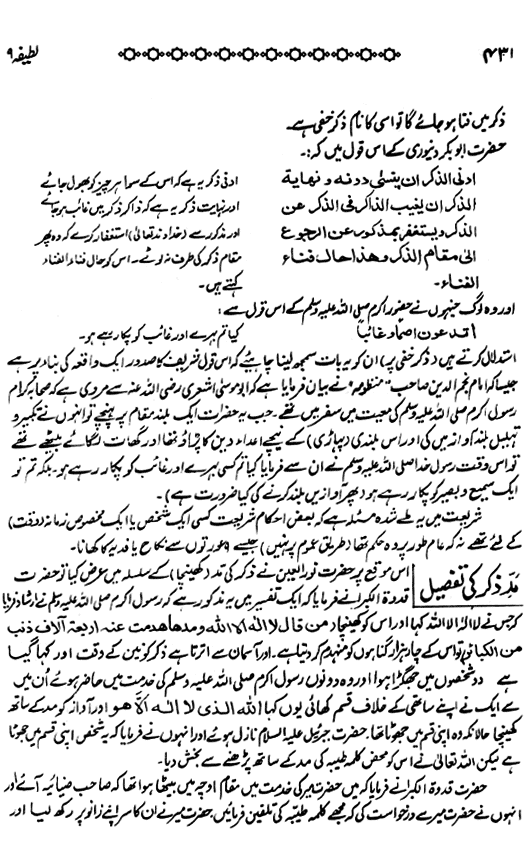 ۴۳۱ لطیفہ ۹
ذکر میں فنا ہو جائے گا تو اسی کا نام ذکر خفی ہے۔
حضرت ابوبکر دنیوری کے اس قول میں کہ:۔
ادنی الذکر ان ینسٰی دونہ و نھایة
الذکر ان یغیب الذاکر فی الذکر عن
الذکر و یستغفر بمذکورہ عن الرجوع
الیٰ مقام الذکر و ھذا حال فناء
الفناء۔
ادنیٰ ذکر یہ ہے کہ اس کے سوا ہر چیز کو بھول جائے
اور نہایت ذکر یہ ہے کہ ذاکر ذکر میں غائب ہو جائے
اور مذکور سے (خداوند تعالیٰ) استغفار کرے کہ وہ پھر
مقام ذکر کی طرف نہ لوٹے۔ اس کو حال فناء الفناء
کہتے ہیں۔
اور وہ لوگ جنہوں نے حضور اکرم صلی اللہ علیہ وسلم کے اس قول سے:
أتدعون اصم او غائباً کیا تم بہرے اور غائب کو پکار رہے ہو۔
استدلال کرتے ہیں (ذکر خفی پر) ان کو یہ بات سمجھ لینا چاہئے کہ اس قول شریف کا صدور ایک واقعہ کی بناء پر ہے
جیسا کہ امام نجم الدین صاحب "منظومہ" نے بیان فرمایا ہے کہ ابو موسیٰ اشعری رضی اللہ عنہ سے مروی ہے کہ صحابہ کرام
رسول اکرم صلی اللہ علیہ وسلم کی معیت میں سفر میں تھے۔ جب یہ حضرات ایک بلند مقام پر پہنچے تو انہوں نے تکبیر و
تہلیل بلند آواز میں کی اور اس بلندی (پہاڑی) کے نیچے اعداء دین کا پڑاؤ تھا اور گھات لگائے بیٹھے تھے
تو اس وقت رسول خدا صلی اللہ علیہ وسلم نے ان سے فرمایا کیا تم کسی بہرے اور غائب کو پکار رہے ہو۔ بلکہ تم تو
ایک سمیع و بصیر کو پکار رہے ہو (پھر آوازیں بلند کرنے کی کیا ضرورت ہے)۔
شریعت میں یہ طے شدہ مسئلہ ہے کہ بعض احکام شریعت کسی ایک شخص یا ایک مخصوص زمانہ (وقت)
کے لئے تھے نہ کہ عام طور پر وہ حکم تھا (بطریق عموم پر نہیں) جیسے عورتوں سے نکاح یا فدیہ کا کھانا۔
مدِّ ذکر کی تفصیل
اس موقع پر حضرت نور العین نے ذکر کی مد (کھینچنا) کے سلسلہ میں عرض کیا تو حضرت
قدوۃ الکبرا نے فرمایا کہ ایک تفسیر میں یہ مذکور ہے کہ رسول اکرم صلی اللہ علیہ وسلم نے ارشاد فرمایا
کہ جس نے لا الٰہ الا اللہ کہا اور اس کو کھینچا، من قال لا الٰہ الا اللہ و مدھا ھدمت عنہ اربعة آلاف ذنب
من الکبائر تو اس کے چار ہزار گناہوں کو منہدم کر دیتا ہے۔ اور آسمان سے اترتا ہے ذکر زمین کے وقت اور کہا گیا
ہے دو شخصوں میں جھگڑا ہوا اور وہ دونوں رسول اکرم صلی اللہ علیہ وسلم کی خدمت میں حاضر ہوئے اُن میں
سے ایک نے اپنے ساتھی کے خلاف قسم کھائی یوں کہا اللہ الذی لا الہ الا ھو اور آواز کو مد کے ساتھ
کھینچا حالانکہ وہ اپنی قسم میں جھوٹا تھا۔ حضرت جبرئیل علیہ السلام نازل ہوئے اور انہوں نے فرمایا کہ یہ شخص اپنی قسم میں جھوٹا
ہے لیکن اللہ تعالیٰ نے اس کو محض کلمہ طیبہ کی مد کے ساتھ پڑھنے سے بخش دیا۔
حضرت قدوۃ الکبرا نے فرمایا کہ میں حضرت میر کی خدمت میں مقام اوچہ میں بیٹھا ہوا تھا کہ صاحب ضیائیہ آئے اور
انہوں نے حضرت میر سے درخواست کی کہ مجھے کلمہ طیبہ کی تلقین فرمائیں حضرت میر نے ان کا سر اپنے زانو پر رکھ لیا اور